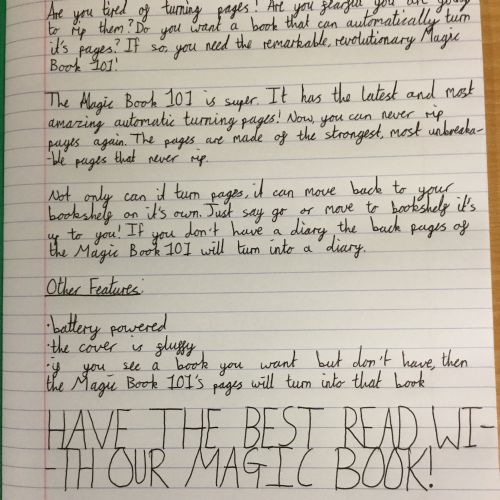 Are you tired of turning pages? Are you fearful you are going
to rip them? Do you want a book that can automatically turn
it's pages? If so, you need the remarkable, revolutionary Magic
Book 101!
The Magic Book 101 is super. It has the latest and most
amazing automatic turning pages! Now, you can never rip
pages again. The pages are made of the strongest, most unbreaka-
-ble pages that never rip.
Not only can it turn pages, it can move back to your
bookshelf on it's own. Just say go or move to bookshelf it's
up to you! If you don't have a diary the back pages of
the Magic Book 101 will turn into a diary.
Other Features:
·battery powered
·the cover is fluffy
·if you see a book you want but don't have, then
the Magic Book 101's pages will turn into that book
HAVE THE BEST READ WI-
-TH OUR MAGIC BOOK!